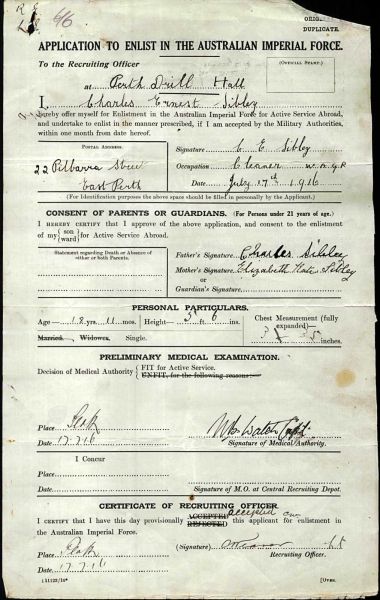 ORIG
DUPLICATE.
APPLICATION TO ENLIST IN THE AUSTRALIAN IMPERIAL FORCE.
To the Recruiting Officer
(OFFICIAL STAMP.)
at Perth Drill Hall
I, Charles Ernest Sibley
hereby offer myself for Enlistment in the Australian Imperial Force for Active Service Abroad,
and undertake to enlist in the manner prescribed, if I am accepted by the Military Authorities,
within one month from date hereof.
POSTAL ADDRESS.
22 Pilbarra Street
East Perth
Signature C E Sibley
Occupation Cleaner W.A.G.R
Date July 17th 1916
(For Identification purposes the above space should be filled in personally by the Applicant.)
CONSENT OF PARENTS OR GUARDIANS. (For Persons under 21 years of age.)
I HEREBY CERTIFY that I approve of the above application, and consent to the enlistment
of my (son ward) for Active Service Abroad.
Statement regarding Death or Absence of
either or both Parents.
Father's Signature Charles Sibley
Mother's Signature Elizabeth Kate Sibley
or
Guardian's Signature
PERSONAL PARTICULARS.
Age— 18 yrs. 11 mos. Height— 5 ft. 6 ins.
Married. Widower. Single.
Chest Measurement (fully
expanded)—
inches
PRELIMINARY MEDICAL EXAMINATION.
Decision of Medical Authority { FIT for Active Service.
UNFIT, for the following reasons:—
Place
Date 17.7.16
Capt
Signature of Medical Authority.
I Concur
Place
Date
Signature of M.O. at Central Recruiting Depot.
CERTIFICATE OF RECRUITING OFFICER.
I CERTIFY that I have this day provisionally ACCEPTED REJECTED accepted this applicant for enlistment
in the Australian Imperial Force.
Place
Date 17.7.16
(Signature) Lt
Recruiting Officer.